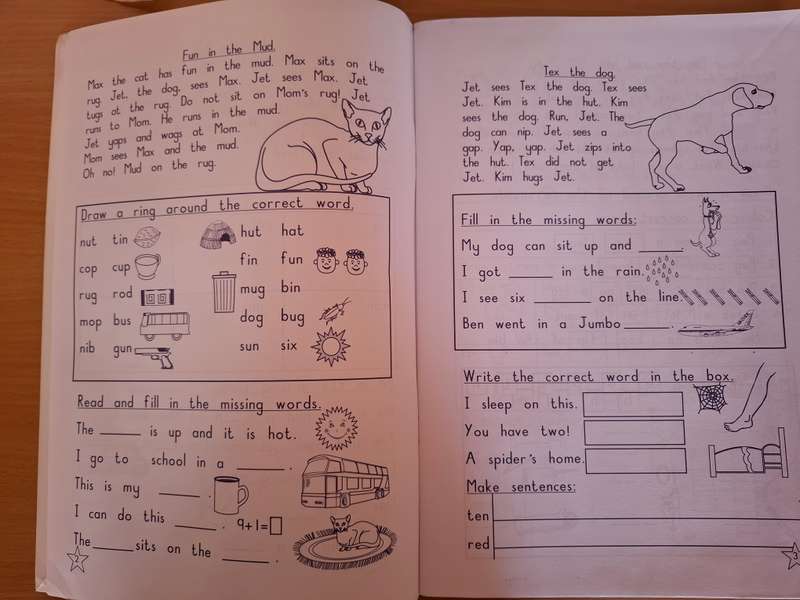 Fun in the Mud.
Max the cat has fun in the mud. Max sits on the
rug. Jet, the dog, sees Max. Jet sees Max. Jet
tugs at the rug. Do not sit on Mom's rug! Jet
runs to Mom. He runs in the mud.
Jet yaps and wags at Mom.
Mom sees Max and the mud.
Oh no! Mud on the rug.
Draw a ring around the correct word.
nut tin hut hat
cop cup fin fun
rug rod mug bin
mop bus dog bug
nib gun sun six
Read and fill in the missing words.
The ______ is up and it is hot.
I go to school in a ______.
This is my ______.
I can do this ______. 9+1=
The ______ sits on the ______.
2
Tex the dog.
Jet sees Tex the dog. Tex sees
Jet. Kim is in the hut. Kim
sees the dog. Run, Jet. The
dog can nip. Jet sees a
gap. Yap, yap. Jet zips into
the hut. Tex did not get
Jet. Kim hugs Jet.
Fill in the missing words:
My dog can sit up and ______.
I got ______ in the rain.
I see six ______ on the line.
Ben went in a Jumbo ______.
Write the correct word in the box.
I sleep on this.
You have two!
A spider's home.
Make sentences:
ten
red
3